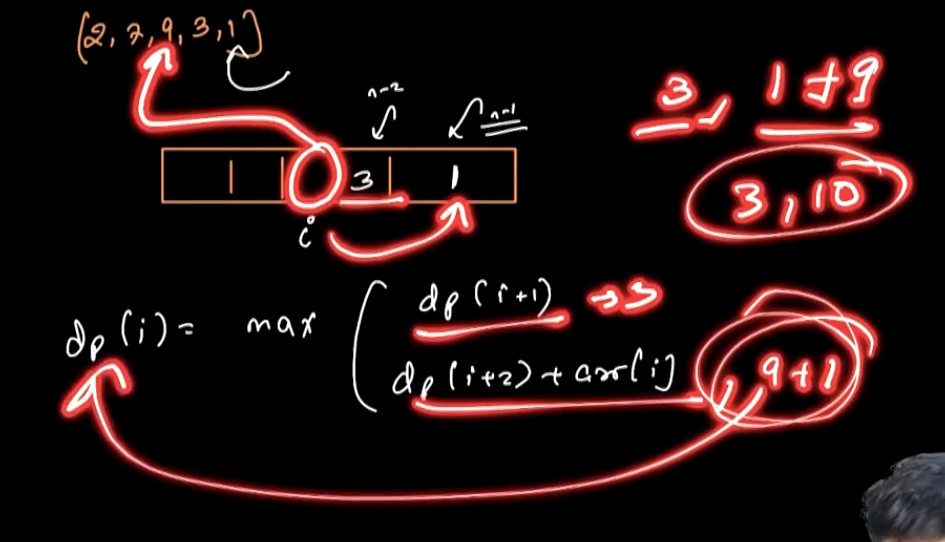 [2, 7, 9, 3, 1]
n-2
n-1
3, 1+9
3 1
3, 10
i
dp(i) = max
dp(i+1) → 3
dp(i+2) + arr[i], 9+1